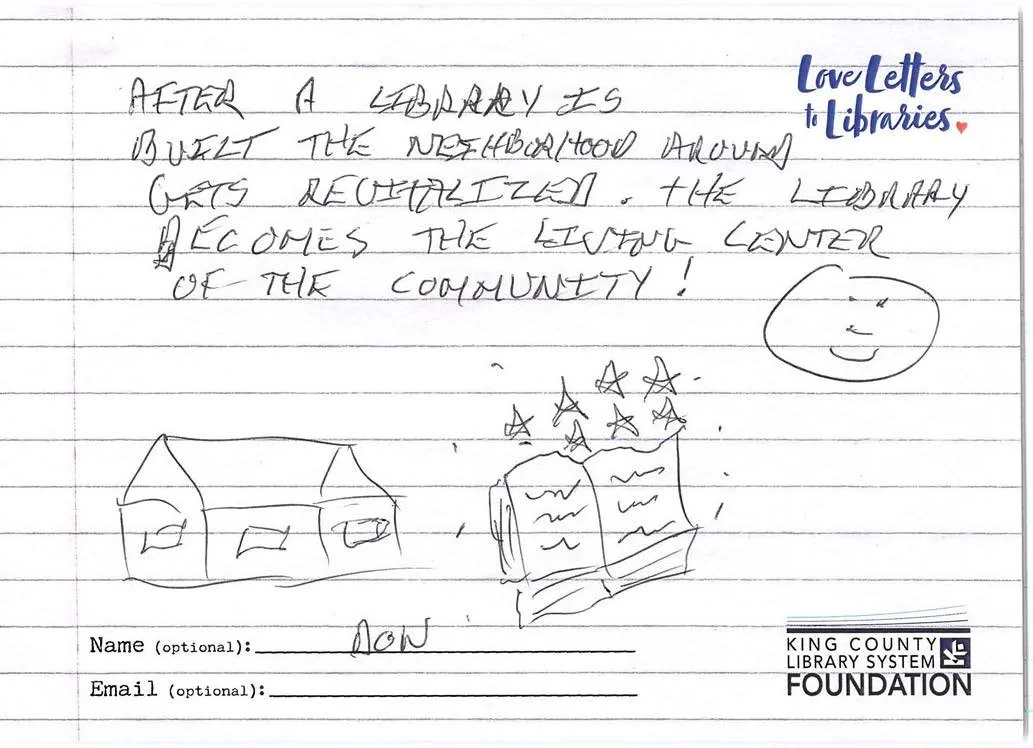 AFTER A LIBRARY IS
BUILT THE NEIGHBORHOOD AROUND
GETS REVITALIZED. THE LIBRARY
BECOMES THE LIVING CENTER
OF THE COMMUNITY!
Love Letters
to Libraries
Name (optional): DON
Email (optional):
KING COUNTY
LIBRARY SYSTEM
FOUNDATION